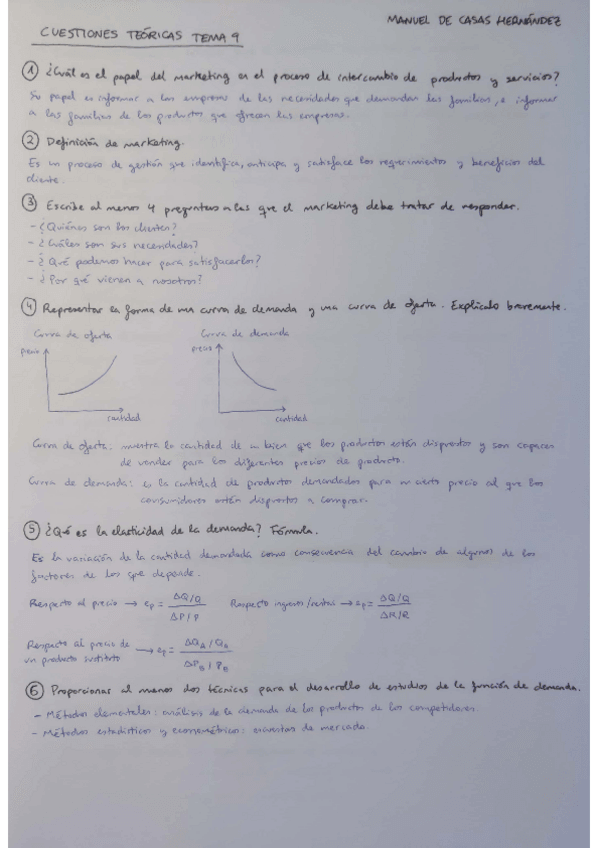 MANUEL DE CASAS HERNÁNDEZ
CUESTIONES TEÓRICAS TEMA 9
① ¿Cuál es el papel del marketing en el proceso de intercambio de productos y servicios?
Su papel es informar a las empresas de las necesidades que demandan las familias, e informar
a las familias de los productos que ofrecen las empresas.
② Definición de marketing.
Es un proceso de gestión que identifica, anticipa y satisface los requerimientos y beneficios del
cliente.
③ Escribe al menos 4 preguntas a las que el marketing debe tratar de responder.
- ¿Quiénes son los clientes?
- ¿Cuáles son sus necesidades?
- ¿Qué podemos hacer para satisfacerlos?
- ¿Por qué vienen a nosotros?
④ Representar la forma de una curva de demanda y una curva de oferta. Explícalo brevemente.
Curva de oferta
Curva de demanda
precio
precio
cantidad
cantidad
Curva de oferta: muestra la cantidad de un bien que los productos están dispuestos y son capaces
de vender para los diferentes precios de producto.
Curva de demanda: es la cantidad de productos demandados para un cierto precio al que los
consumidores están dispuestos a comprar.
⑤ ¿Qué es la elasticidad de la demanda? Fórmula.
Es la variación de la cantidad demandada como consecuencia del cambio de algunos de los
factores de los que depende.
Respecto al precio → ep = ΔQ/Q
ΔP/P
Respecto ingresos/rentas → ep = ΔQ/Q
ΔR/R
Respecto al precio de
un producto sustituto → ep = ΔQA/QA
ΔPB/PB
⑥ Proporcionar al menos dos técnicas para el desarrollo de estudios de la función de demanda.
- Métodos elementales: análisis de la demanda de los productos de los competidores.
- Métodos estadísticos y econométricos: encuestas de mercado